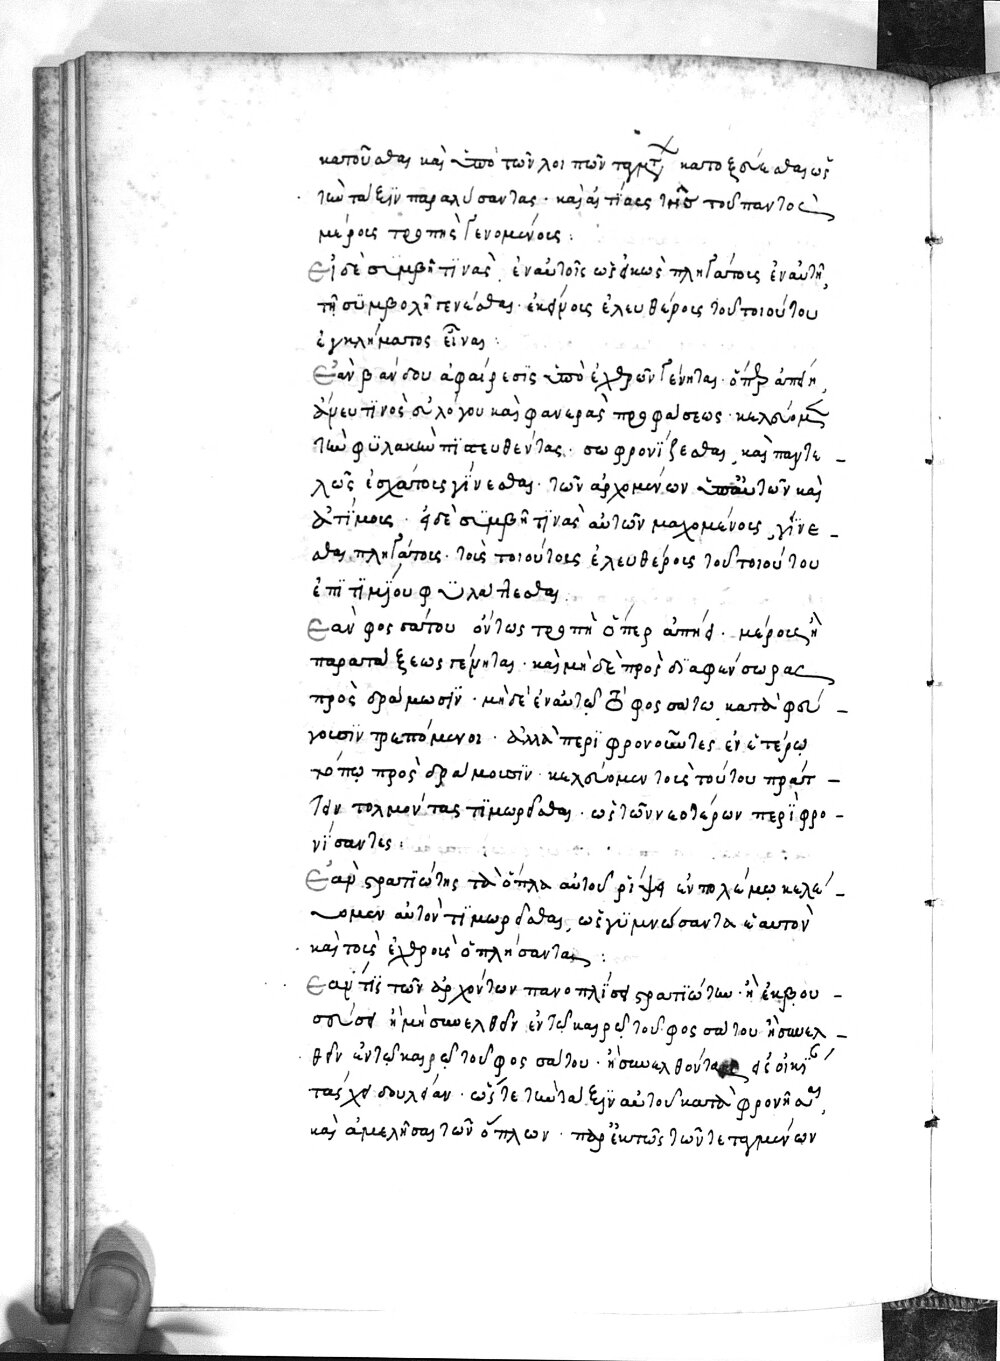 κατοῦσθαι καὶ ὑπὸ τῶν λοιπῶν ταγμάτ κατοξεύεσθαι ὡς
τὴν τάξιν παραλύσαντας· καὶ αἰτίους τῆς τοῦ παντὸς
μέρους τροπῆς γενομένους:
Εἰ δὲ συμβῆ τινὰς ἐν αὐτοῖς ὡς εἰκὼς πληγάτους ἐν αὐτῆ
τῆ συμβολῆ γενέσθαι· ἐκείνους ἐλευθέρους τοῦ τοιούτου
ἐγκλήματος εἶναι:
Ἐὰν βάνδου ἀφαίρεσις ὑπὸ ἐχθρῶν γένηται· ὅπερ ἀπείη,
ἄνευ τινὸς εὐλόγου καὶ φανερᾶς προφάσεως· κελεύομεν
τὴν φυλακὴν πιστευθέντας· σωφρονίζεσθαι, καὶ παντε-
λῶς ἐσχάτους γίνεσθαι· τῶν ἀρχομένων ὑπ' αὐτῶν καὶ
ἀτίμους· εἰ δὲ συμβῆ τινὰς αὐτῶν μαχομένους, γίνε-
σθαι πληγάτους· τοὺς τοιούτους ἐλευθέρους τοῦ τοιούτου
ἐπιτιμίου φυλάττεσθαι
Ἐὰν φοσσάτου ὄντως τροπὴ ὅπερ ἀπείη· μέρους ἢ
παρατάξεως γένηται· καὶ μηδὲ πρὸς διαφένσωρας
προσδράμωσιν· μηδὲ ἐν αὐτῷ τῷ φοσσάτω καταφεύ-
γουσιν τρεπόμενοι· ἀλλὰ περιφρονοῦντες ἐν ἑτέρῳ
τόπῳ προσδράμουσιν· κελεύομεν τοὺς τοῦτου πράτ-
τειν τολμοντας τιμωρεῖσθαι· ὡς τῶν νεοτέρων περιφρο-
νίσαντες:
Ἐὰν στρατιώτης τὰ ὅπλα αὐτοῦ ῥίψει ἐν πολέμῳ κελεύ-
ομεν αὐτὸν τιμωρεῖσθαι, ὡς γυμνώσαντα ἑαυτὸν
καὶ τοὺς ἐχθροὺς ὁπλήσαντα:
Ἐάν τις τῶν ἀρχόντων πανοπλίσει στρατιώτην· ἢ ἐκβου-
σεύσει ἢ μὴ συνελθεῖν ἐν τῷ καιρῷ τοῦ φοσσάτου ἢ συνελ-
θεῖν ἐν τῷ καιρῷ τοῦ φοσσάτου· ἢ συνελθόντας εἰς οἰκή
τας χει δουλείαν· ὥστε τὴν τάξιν αὐτοῦ καταφρονῆσαι,
καὶ ἀμελῆσαι τῶν ὅπλων· παρεκτὸς τῶν τεταγμένων